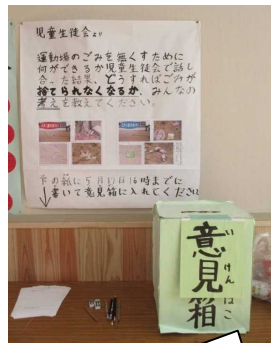 児童生徒会より
運動場のごみを無くすために
何ができるか児童生徒会で話し
合った結果、どうすればごみが
捨てられなくなるか、みんなの
考えを教えてください。
下の紙に5月17日16時までに
書いて意見箱に入れてください
意見箱
いけんばこ